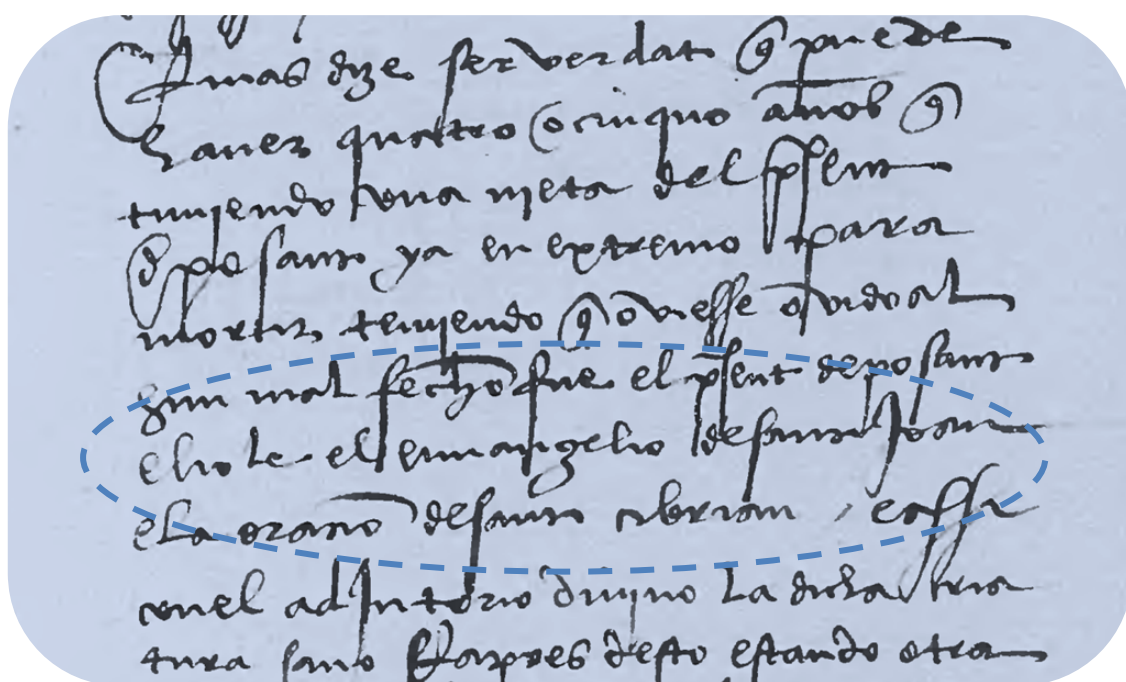 E mas dize ser verdat q puede
haver quatro o cinquo anos q
tuniendo una nieta del pnt
q posant ya en extremo para
morir teniendo q oviesse ovido al
hun mal fecho fue el pnt deposant
e lio le el evvangelio de sant Joan
e la oracio de sant cibrian / e assi
con el adjutorio divino la dicha cria
tura sano E apres desto estando otra